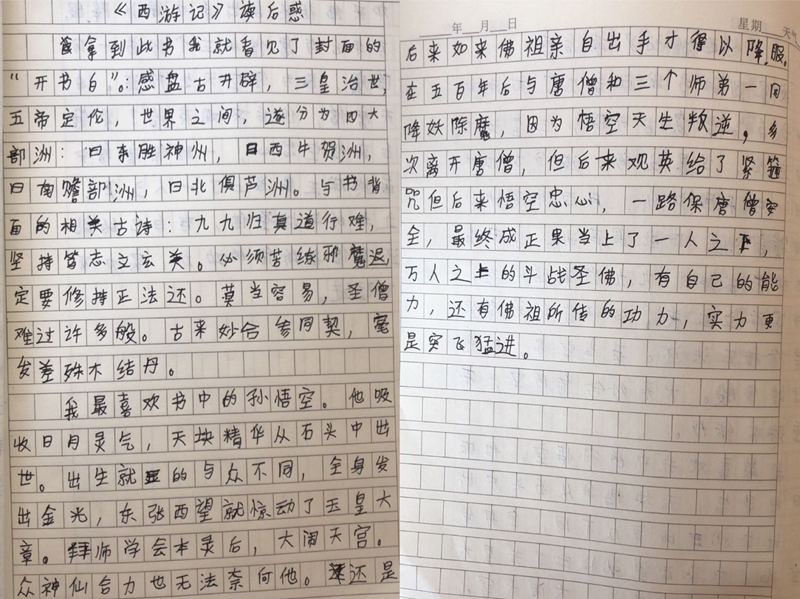 《西游记》读后惑
拿到此书我就看见了封面的
“开书白”。:感盘古开辟，三皇治世，
五帝定伦，世界之间，遂分为四大
部洲：曰东胜神州，曰西牛贺洲，
曰南赡部洲，曰北俱芦洲。与书背
面的相关古诗：九九归真道行难，
坚持笃志立玄关。必须苦练邪魔退，
定要修持正法还。莫当容易，圣僧
难过许多般。古来妙合参同契，毫
发差殊不结丹。
我最喜欢书中的孙悟空。他吸
收日月灵气，天块精华从石头中出
世。出生就的与众不同，全身发
出金光，东张西望就惊动了玉皇大
章。拜师学会本灵后，大闹天宫。
众神仙合力也无法奈何他。还是
年 月 日 星期 天气
后来如来佛祖亲自出手才得以降服。
在五百年后与唐僧和三个师弟一同
降妖除魔，因为悟空天生叛逆，多
次离开唐僧，但后来观英给了紧箍
咒但后来悟空忠心，一路保唐僧安
全，最终成正果当上了一人之下，
万人之上的斗战圣佛，有自己的能
力，还有佛祖所传的功力，实力更
是突飞猛进。